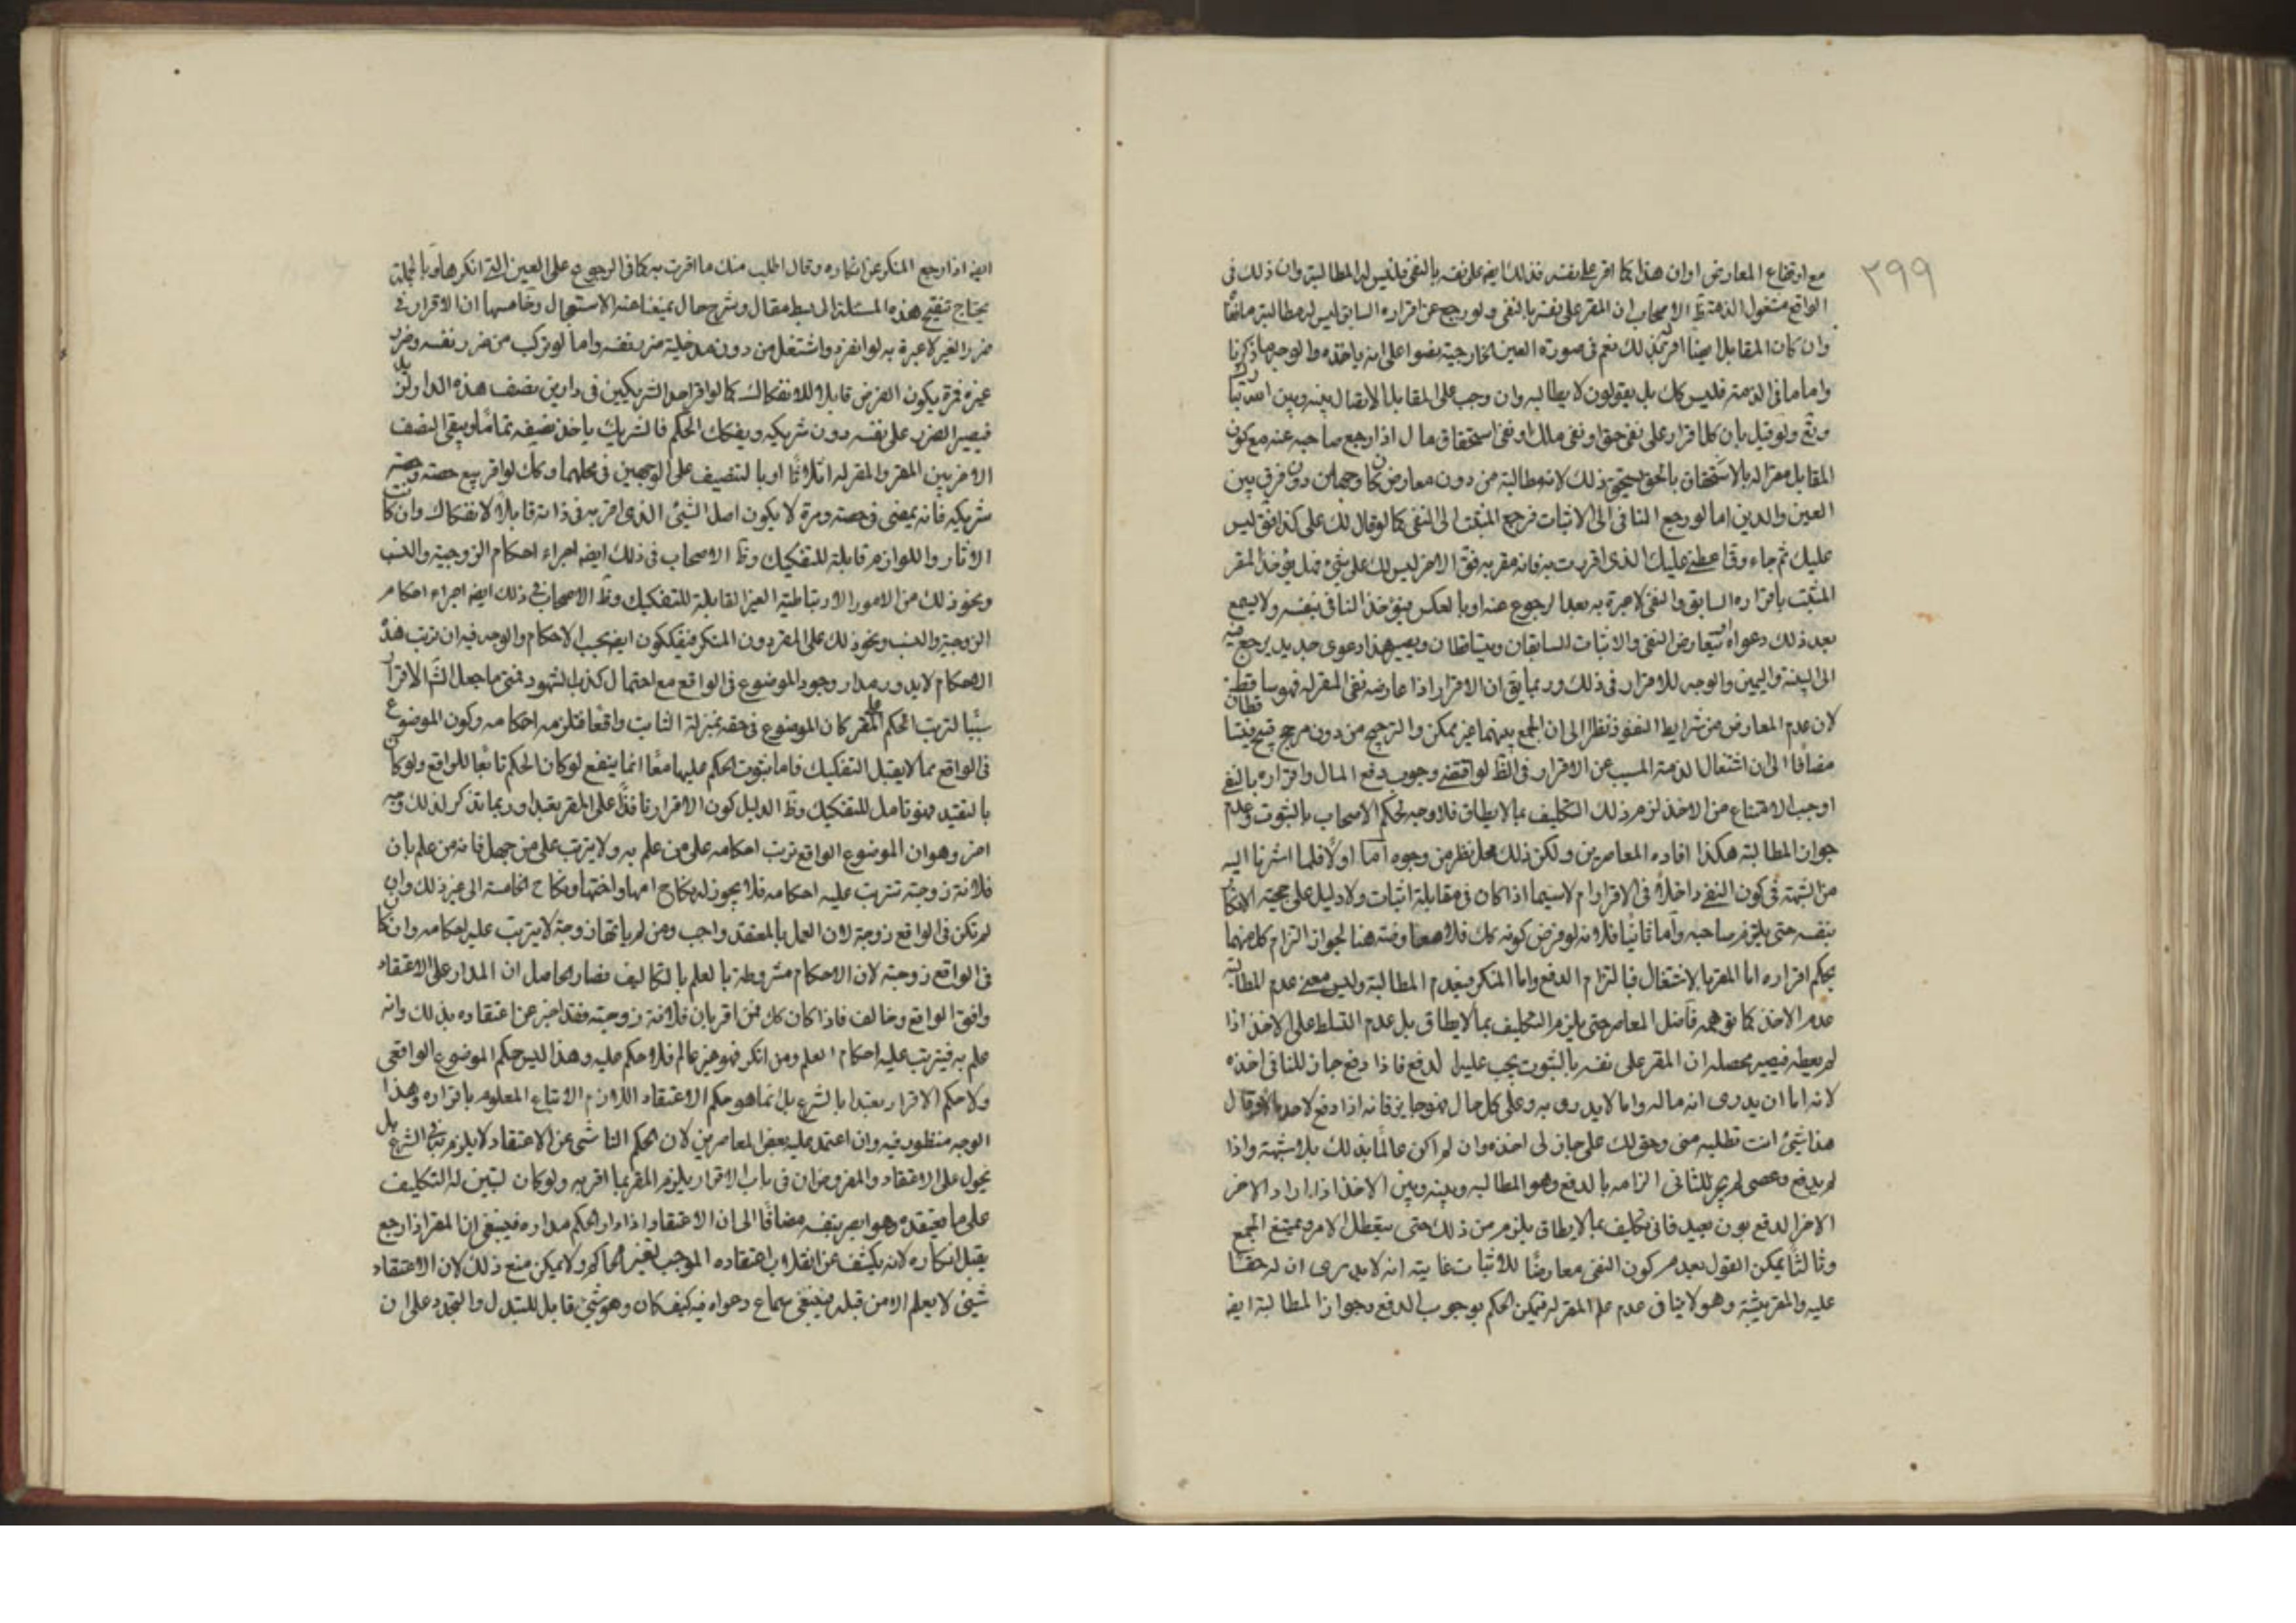 ٣٩٩
مع ارتفاع المعارض او ان هذا كما اقر على نفسه فذلك ايضا على نفسه بالنفى فليس له المطالبة وان ذلك فى
الواقع مشغول الذمة وظ الاصحاب ان المقر على نفسه بالنفى ولو رجع عن اقراره السابق ليس له مطالبة مافى
وان كان المقابل ايضا اقر له بذلك نعم فى صورة العين الخارجية نصوا على انه ياخذه والوجه ما ذكرنا
واما ما فى الذمة فليس كك بل يقولون لا يطالبه وان وجب على المقابل الايصال بينه وبين
ولو قيل بان كل اقرار على نفى حق او نفى ملك او نفى استحقاق مال اذا رجع صاحبه عنه مع كون
المقابل مقرا له بالاستحقاق بالحق يستحق ذلك لانه مطالبة من دون معارض كان وجها من دون فرق بين
العين والدين اما لو رجع النافى الى الاثبات فرجع المثبت الى النفى كما لو قال لك على كذا فق ليس
عليك ثم جاء وق اعطنى عليك الذى اقررت به فانه مقر به فق الاخر ليس لك على شئ فهل يؤخذ المقر
المثبت باقراره السابق والنفى لا عبرة به بعد الرجوع عنه او بالعكس فيؤخذ النافى بنفيه ولا يسمع
بعد ذلك دعواه او يتعارض النفى والاثبات السابقان ويتساقطان ويصير هذا دعوى جديد يرجع فيه
الى البينة واليمين والوجه للاقرار فى ذلك وربما يق ان الاقرار اذا عارضه نفى المقر له فهو ساقط
لان عدم المعارض من شرايط النفوذ نظرا الى ان الجمع بينهما غير ممكن والترجيح من دون مرجح قبيح فيتساقطان
مضافا الى ان اشتغال الذمة المسبب عن الاقرار فى الظ لو اقتضى وجوب دفع المال واقراره بالنفى
اوجب الامتناع من الاخذ لزم من ذلك التكليف بما لا يطاق فلا وجه لحكم الاصحاب بالثبوت وعدم
جواز المطالبة هكذا افاده المعاصرين ولكن ذلك محل نظر من وجوه اما اولا فلما اشرنا اليه
من الشبهة فى كون النفى داخلا فى الاقرار ام لا سيما اذا كان فى مقابلة اثبات ولا دليل على حجية الانكار
بنفسه حتى يلتزم صاحبه واما ثانيا فلانه لو فرض كونه كك فلا معارضة هنا لجواز التزام كل منهما
بحكم اقراره اما المقر بالاشتغال فبالتزام الدفع واما المنكر فبعدم المطالبة وليس معنى عدم المطالبة
عدم الاخذ كما توهمه فاضل المعاصر حتى يلزم التكليف بما لا يطاق بل عدم التسلط على الاخذ اذا
لم يعطه فيصير محصله ان المقر على نفسه بالثبوت يجب عليه الدفع فاذا دفع جاز للنافى اخذه
لانه اما ان يدرى انه ماله واما لا يدرى به وعلى كل حال فهو جايز فانه اذا دفع لاحد مالا وقال
هذا شئ انت تطلبه منى وحق لك على جاز لى اخذه وان لم اكن عالما بذلك بلا شبهة واذا
لم يدفع وعصى لم يجز للثانى الزامه بالدفع وهو المطالبة وبينه وبين الاخذ اذا اراد الاخر
الاخر الدفع بون بعيد فاى تكليف بما لا يطاق يلزم من ذلك حتى يتعطل الامر ويمتنع الجمع
وثالثا يمكن القول بعدم كون النفى معارضا للاثبات غايته انه لا يدرى ان له حقا
عليه والمقر يثبته وهو لا ينافى عدم علم المقر له فيمكن الحكم بوجوب الدفع وجواز المطالبة ايضا
ايضا اذا رجع المنكر عن انكاره وقال اطلب منك ما اقررت به كما فى الرجوع على العين التى انكرها وبالجملة
يحتاج تنقيح هذه المسئلة الى بسط مقال وشرح حال يمنعنا عنه الاستعجال وخامسها ان الاقرار فى
ضرر الغير لا عبرة به لو انفرد واشتغل من دون مدخلية ضرر نفسه واما لو تركب من ضرر نفسه وضرر
غيره فمرة يكون الفرض قابلا للانفكاك كما لو اقر احد الشريكين فى دارين بنصف هذه الدار لزيد
فيصير الضرر على نفسه دون شريكه ويفكك الحكم فالشريك ياخذ نصيفه تماما ويبقى النصف
الاخر بين المقر والمقر له اثلاثا او بالتنصيف على الوجهين فى محلهما وكك لو اقر ببيع حصته وحصة
شريكه فانه يمضى فى حصته ومرة لا يكون اصل الشئ الذى اقر به فى ذاته قابلا لانفكاك وان كانت
الاثار واللوازم قابلة للتفكيك وظ الاصحاب فى ذلك ايضا اجراء احكام الزوجية والنسب
ونحو ذلك من الامور الارتباطية الغير القابلة للتفكيك وظ الاصحاب فى ذلك ايضا اجراء احكام
الزوجية والنسب ونحو ذلك على المقر دون المنكر فيفككون ايضا بحسب الاحكام والوجه فيه ان ترتب هذه
الاحكام لا يدور مدار وجود الموضوع فى الواقع مع احتمال كذب الشهود فمتى ما جعل الش الاقرار
سببا لترتب الحكم على المقر كان الموضوع فى حقه بمنزلة الثابت واقعا فتلزمه احكامه وكون الموضوع
فى الواقع مما لا يقبل التفكيك فاما ثبوت الحكم عليهما معا انما ينفع لو كان الحكم تابعا للواقع ولو كان
بالتعبد فهو قابل للتفكيك وظ الدليل كون الاقرار نافذا على المقر تعبدا وربما تذكر لذلك وجه
اخر وهو ان الموضوع الواقع ترتب احكامه على من علم به ولا يترتب على من جهل فانه من علم بان
فلانة زوجته تترتب عليه احكامه فلا يجوز له نكاح امها واختها ونكاح الخامسة الى غير ذلك وان
لم تكن فى الواقع زوجة لان العمل بالمعتقد واجب ومن لم يرها زوجة لا يترتب عليه احكامه وان كان
فى الواقع زوجته لان الاحكام مشروطة بالعلم بالتكاليف فصار الحاصل ان المدار على الاعتقاد
وافق الواقع وخالف فاذا كان كك فمن اقر بان فلانة زوجته فقد اخبر عن اعتقاده بذلك وانه
علم به فيترتب عليه احكام العلم ومن انكر فهو غير عالم فلا حكم عليه وهذا ليس حكم الموضوع الواقعى
ولا حكم الاقرار تعبدا بالشرع بل انما هو حكم الاعتقاد اللازم الاتباع المعلوم باقراره وهذا
الوجه منظور فيه وان اعتمد عليه بعض المعاصرين لان الحكم الناشى عن الاعتقاد لا يلزم به فى الشرع بل
يحول على الاعتقاد والمفروض ان فى باب الاقرار يلزم المقر بما اقر به ولو كان لتبين له التكليف
على ما يعتقده وهو ابصر بنفسه مضافا الى ان الاعتقاد اذا دار الحكم مداره فينبغى ان المقر اذا رجع
يقبل انكاره لانه يكشف عن انقلاب اعتقاده الموجب لتغير الحاكم ولا يمكن منع ذلك لان الاعتقاد
شئ لا يعلم الا من قبله فينبغى سماع دعواه فيه كيف كان وهو شئ قابل للتبدل والتجدد على ان